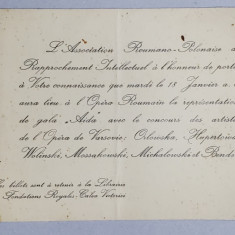 L'Association Roumano-Polonaise
Rapprochement Intellectuel à l'honneur de port
à Votre connaissance que mardi le 18 Janvier a
aura lieu à l'Opéra Roumain la représentation
de gala "Aida" avec le concours des artiste
de l'Opéra de Varsovie: Orłowska, Huperłowa
Wolinski, Mossakowski, Michalowski et Bende
billets sont à retenir à la Librairie
Fondations Royales, Calea Victoriei